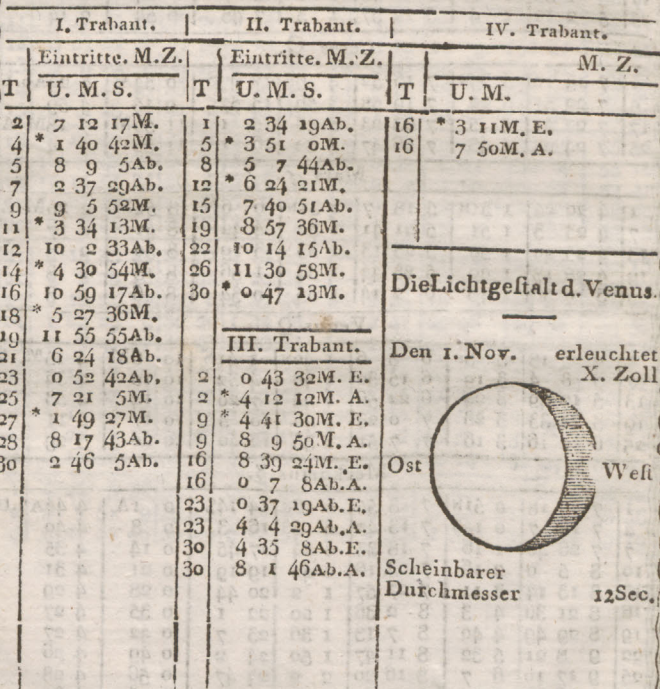 I. Trabant.
Eintritte. M.Z.
T U. M. S.
2 7 12 17M.
4 * 1 40 42M.
5 8 9 5Ab.
7 2 37 29Ab.
9 9 5 52M.
11 * 3 34 13M.
12 10 2 33Ab.
14 * 4 30 54M.
16 10 59 17Ab.
18 * 5 27 36M.
19 11 55 55Ab.
21 6 24 18Ab.
23 0 52 42Ab.
25 7 21 5M.
27 * 1 49 27M.
28 8 17 43Ab.
30 2 46 5Ab.
II. Trabant.
Eintritte. M.Z.
T U. M. S.
1 2 34 19Ab.
5 * 3 51 0M.
8 5 7 44Ab.
12 * 6 24 21M.
15 7 40 51Ab.
19 8 57 36M.
22 10 14 15Ab.
26 11 30 58M.
30 * 0 47 13M.
III. Trabant.
2 0 43 32M. E.
2 * 4 12 12M. A.
9 * 4 41 30M. E.
9 8 9 50M. A.
16 8 39 24M. E.
16 0 7 8Ab.A.
23 0 37 19Ab.E.
23 4 4 29Ab.A.
30 4 35 8Ab.E.
30 8 1 46Ab.A.
IV. Trabant.
M. Z.
T U. M.
16 * 3 11M. E.
16 7 50M. A.
Die Lichtgeſtalt d. Venus.
Den 1. Nov. erleuchtet
X. Zoll
Ost Weſt
Scheinbarer
Durchmesser 12Sec.